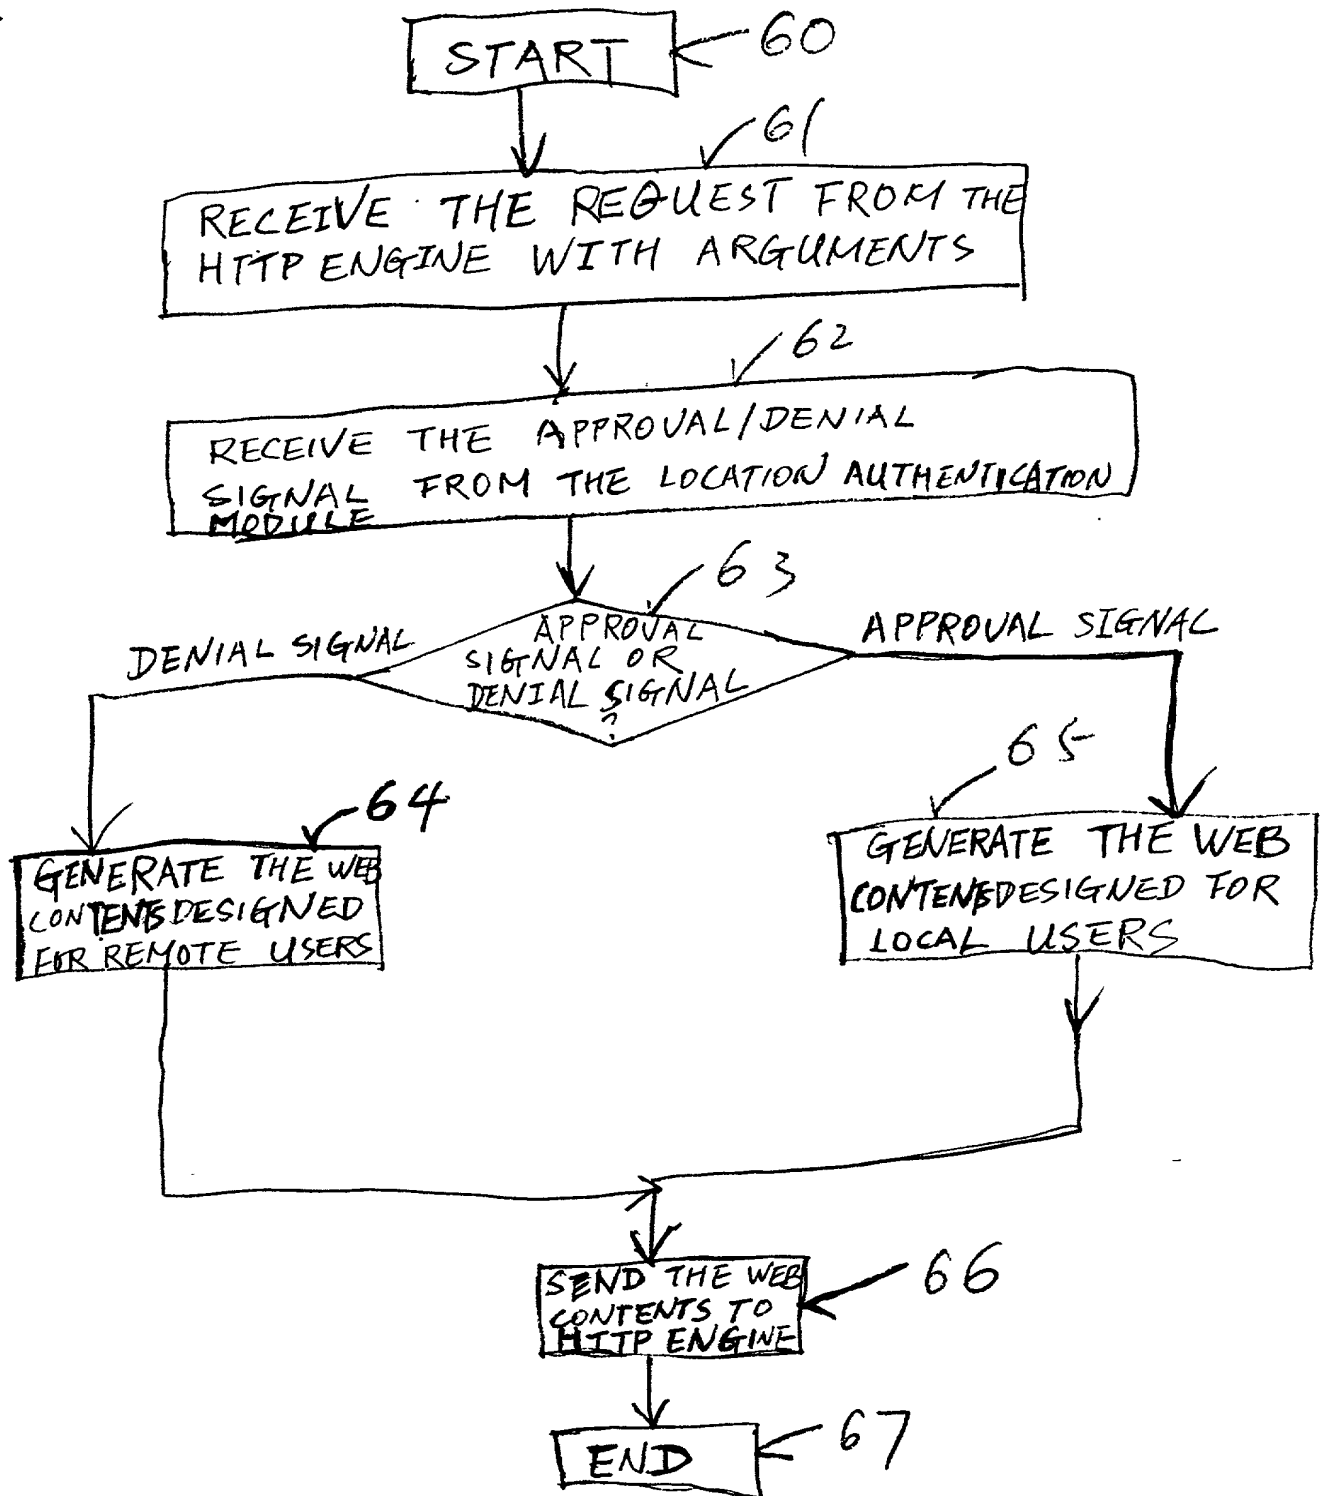 START
60
61
RECEIVE THE REQUEST FROM THE
HTTP ENGINE WITH ARGUMENTS
62
RECEIVE THE APPROVAL/DENIAL
SIGNAL FROM THE LOCATION AUTHENTICATION
MODULE
63
DENIAL SIGNAL
APPROVAL
SIGNAL OR
DENIAL SIGNAL
?
APPROVAL SIGNAL
64
GENERATE THE WEB
CONTENTS DESIGNED
FOR REMOTE USERS
65
GENERATE THE WEB
CONTENTS DESIGNED FOR
LOCAL USERS
SEND THE WEB
CONTENTS TO
HTTP ENGINE
66
END
67